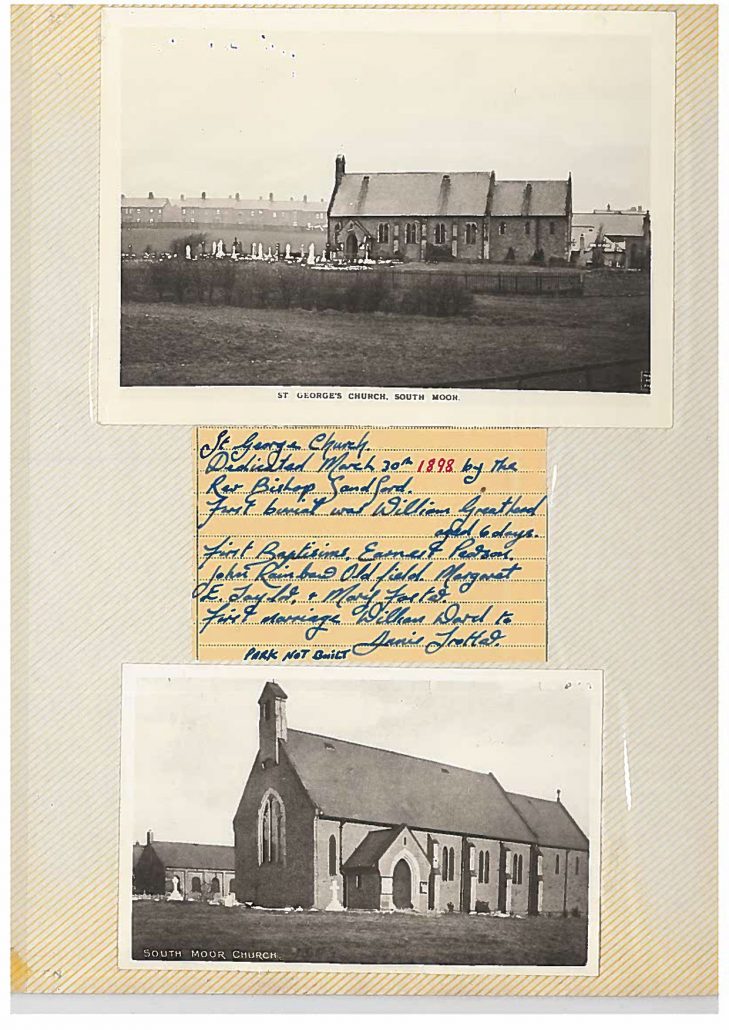 ST GEORGE'S CHURCH, SOUTH MOOR.
St George Church.
Dedicated March 30th 1898 by the
Rev Bishop Sandford.
First burial was William Greathead
aged 6 days.
First Baptisims, Earnest Pearson,
John Rainbow Oldfield Margaret
E. Taylor, + Mary Foster.
First marriage William Ward to
Annie Trotter.
PARK NOT BUILT
SOUTH MOOR CHURCH.